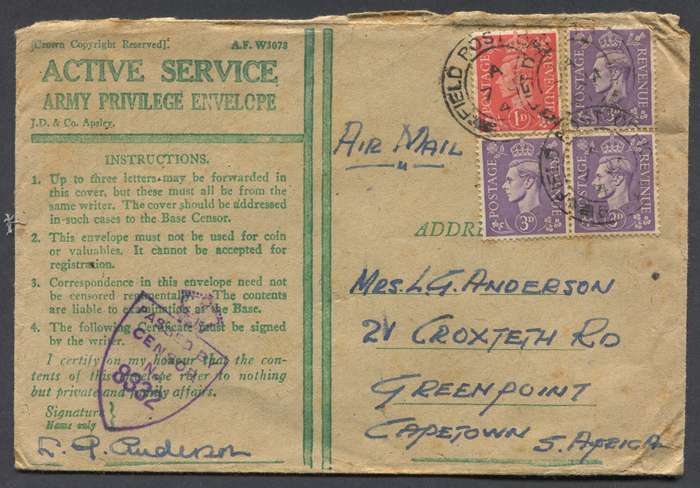 [Crown Copyright Reserved]. A.F. W3078
ACTIVE SERVICE
ARMY PRIVILEGE ENVELOPE
J.D. & Co. Apsley.
INSTRUCTIONS.
1. Up to three letters may be forwarded in
this cover, but these must all be from the
same writer. The cover should be addressed
in such cases to the Base Censor.
2. This envelope must not be used for coin
or valuables. It cannot be accepted for
registration.
3. Correspondence in this envelope need not
be censored regimentally. The contents
are liable to examination at the Base.
4. The following Certificate must be signed
by the writer.
I certify on my honour that the con-
tents of this envelope refer to nothing
but private and family affairs.
Signature }
Name only
L. G. Anderson
PASSED BY
CENSOR
No.
8932
AIR MAIL
FIELD POST OFFICE
POSTAGE REVENUE
1D
POSTAGE REVENUE
3D
POSTAGE REVENUE
3D
POSTAGE REVENUE
3D
ADDRE
MRS. L.G. ANDERSON
21 CROXTETH RD
GREENPOINT
CAPETOWN S. AFRICA